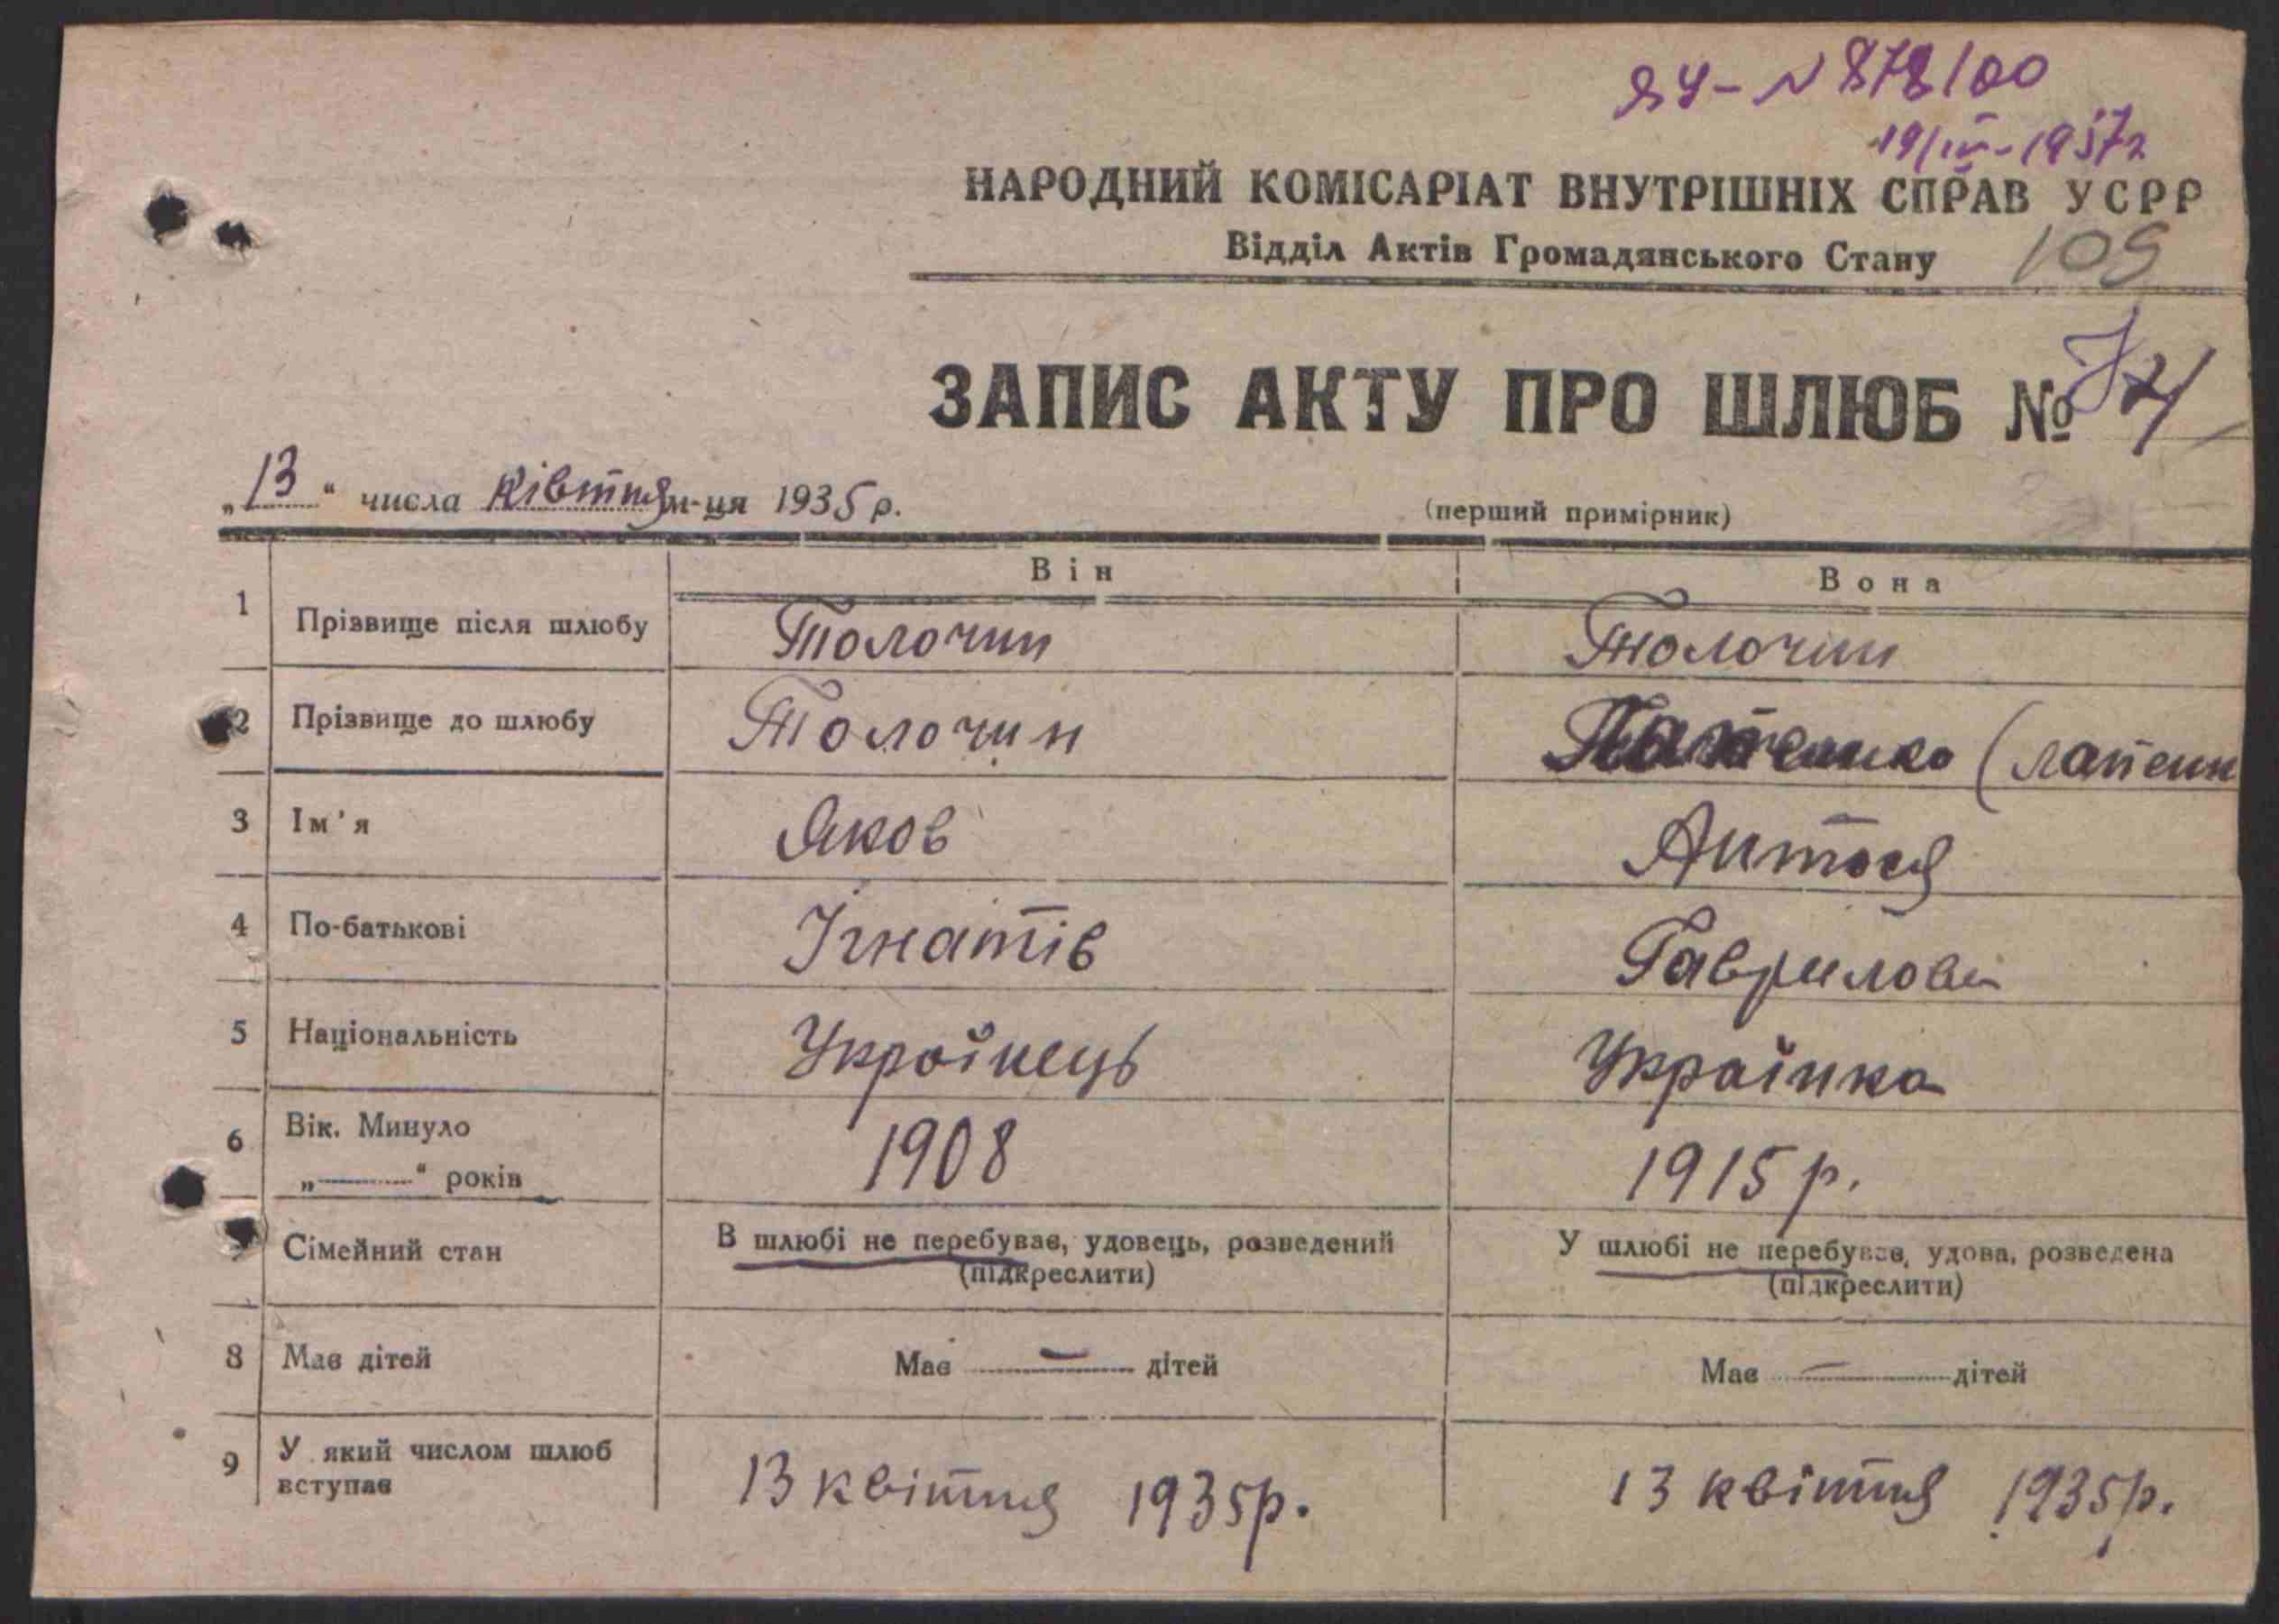 ЯЧ-N 878100
19/IV-1957г
НАРОДНИЙ КОМІСАРІАТ ВНУТРІШНІХ СПРАВ УСРР
Відділ Актів Громадянського Стану 109
ЗАПИС АКТУ ПРО ШЛЮБ №
„13“ числа Квітня м-ця 1935 р.
(перший примірник)
Він Вона
1 Прізвище після шлюбу Толочин Толочин
2 Прізвище до шлюбу Толочин (лапенк
3 Ім'я Яков Антося
4 По-батькові Ігнатів Гаврилові
5 Національність Українець Українка
6 Вік. Минуло „——“ років 1908 1915 р.
Сімейний стан В шлюбі не перебував, удовець, розведений (підкреслити) У шлюбі не перебував, удова, розведена (підкреслити)
8 Має дітей Має — дітей Має — дітей
9 У який числом шлюб вступає 13 квітня 1935 р. 13 квітня 1935 р.